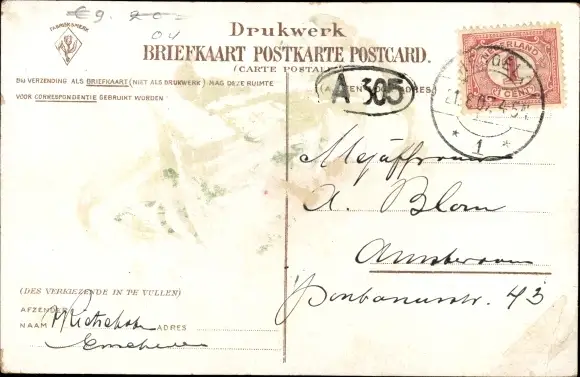 €9.20
04
FABRIKSMERK
Drukwerk
BRIEFKAART POSTKARTE POSTCARD.
(CARTE POSTALE)
BIJ VERZENDING ALS BRIEFKAART (NIET ALS DRUKWERK) MAG DEZE RUIMTE
VOOR CORRESPONDENTIE GEBRUIKT WORDEN
ADRES)
A 305
NEDERLAND
1
CENT
1
Mejuffrouw
A. Blom
Amsterdam
43
(DES VERKIEZENDE IN TE VULLEN)
AFZENDER
NAAM
ADRES